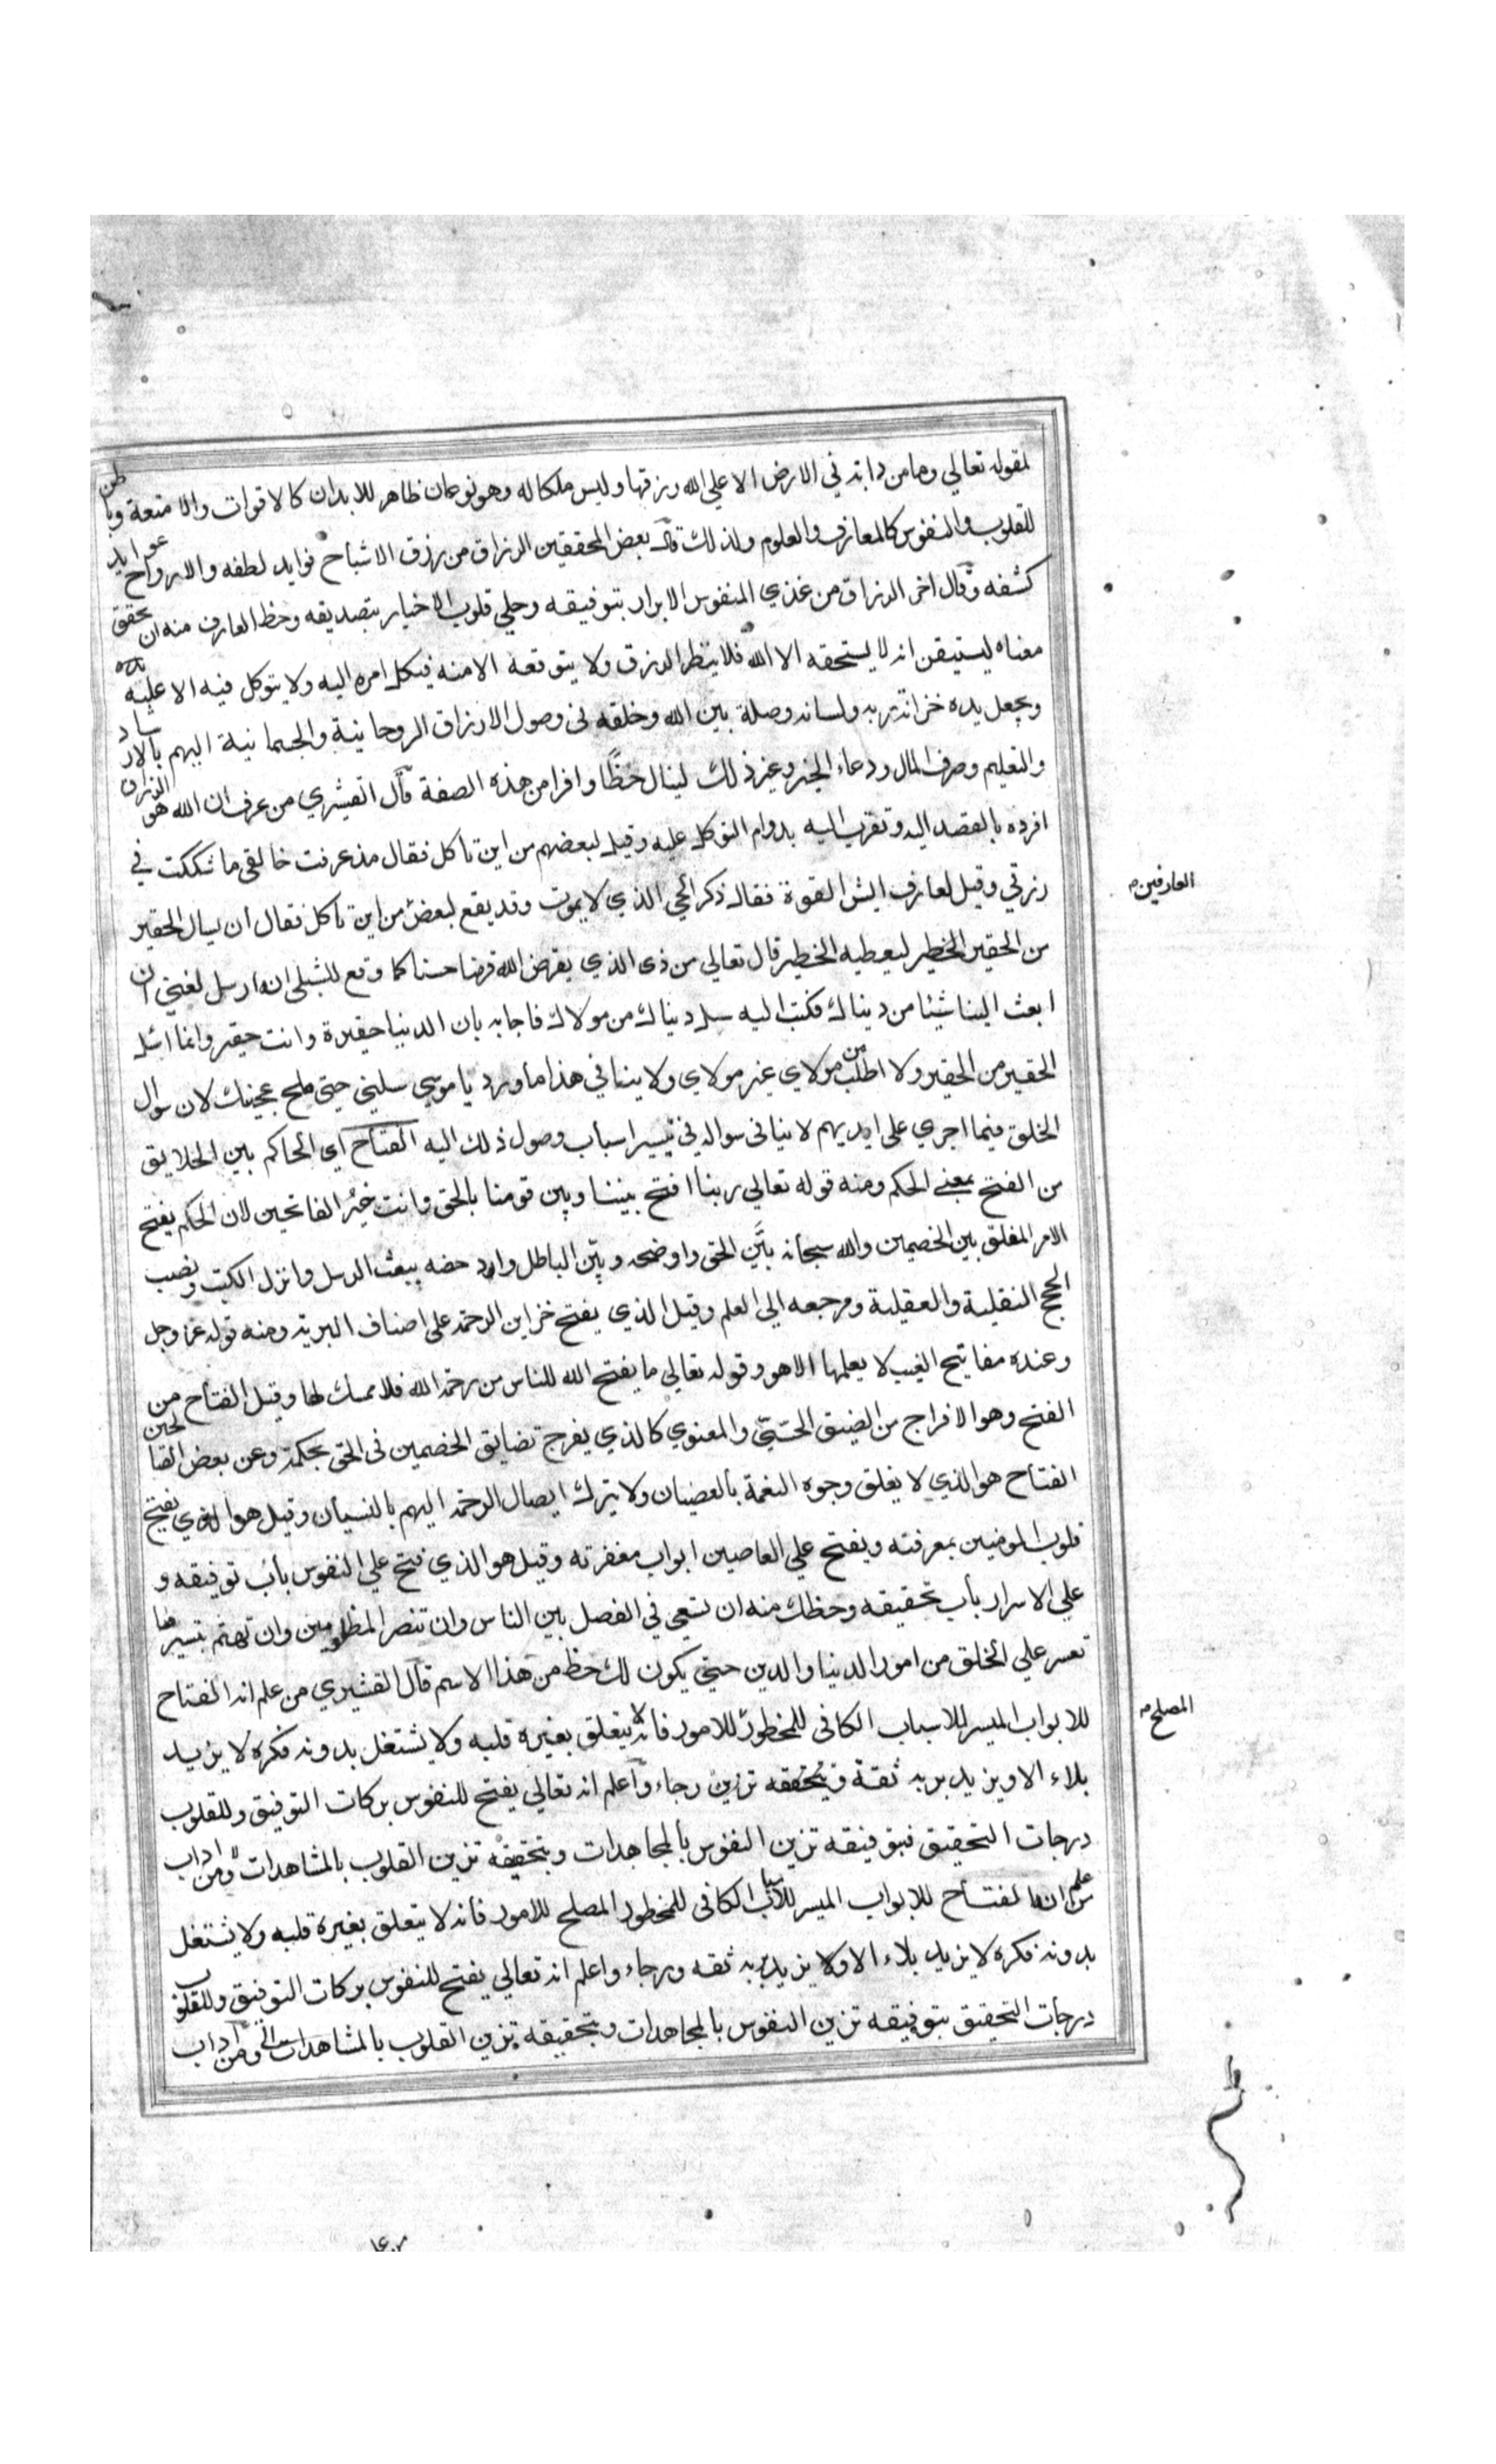 لقوله تعالي وما من دابة في الارض الا علي الله رزقها وليس ملكا له وهو نوعان ظاهر للابدان كالاقوات والامتعة وباطن
للقلوب والنفوس كالمعارف والعلوم ولذلك قال بعض المحققين الرزاق من رزق الاشباح فوايد لطفه والارواح عوايد
كشفه وقال اخر الرزاق من غذي النفوس الابرار بتوفيقه وحلي قلوب الاخيار بتصديقه وحظ العارف منه ان يحقق
معناه ليستيقن انه لا يستحقه الا الله فلا ينتظر الرزق ولا يتوقعه الا منه فيكل امره اليه ولا يتوكل فيه الا عليه
ويجعل يده خزانة ربه ولسانه وصلة بين الله وخلقه في وصول الارزاق الروحانية والجسمانية اليهم بالارشاد
والتعليم وصرف المال ودعاء الخير وغير ذلك لينال حظًا وافرا من هذه الصفة قال القشيري من عرف ان الله هو الرزاق
افرده بالقصد اليه وتقرب اليه بدوام التوكل عليه وقيل لبعضهم من اين تاكل فقال مذ عرفت خالقي ما شككت في
رزقي وقيل لعارف ايش القوة فقال ذكر الحي الذي لا يموت وقد يقع لبعض من اين تاكل فقال ان يسال الحقير
العارفين
من الحقير الخطير ليعطيه الخطير قال تعالي من ذى الذي يقرض الله قرضا حسنا كما وقع للشبلى انه ارسل لغني ان
ابعث الينا شيئا من دنياك فكتب اليه سل دنياك من مولاك فاجابه بان الدنيا حقيرة وانت حقير وانما اسئل
الحقير من الحقير ولا اطلب من مولاي غير مولاي ولا ينافي هذا ما ورد يا موسى سلينى حتى ملح عجينك لان سوال
الخلق فيما اجري على ايديهم لا ينافى سواله في تيسير اسباب وصول ذلك اليه الفتاح اى الحاكم بين الخلايق
من الفتح بمعنى الحكم ومنه قوله تعالي ربنا افتح بيننا وبين قومنا بالحق وانت خيرُ الفاتحين لان الحكم يفتح
الامر المغلق بين الخصمين والله سبحانه بيَّن الحق واوضحه وبيّن الباطل وادحضه ببعث الرسل وانزل الكتب ونصب
الحجج النقلية والعقلية ومرجعه الى العلم وقيل الذي يفتح خزاين الرحمة على اصناف البرية ومنه قوله عز وجل
وعنده مفاتيح الغيب لا يعلمها الا هو وقوله تعالي ما يفتح الله للناس من رحمة الله فلا ممسك لها وقيل الفتاح من
الفتح وهو الافراج من الضيق الحسّيّ والمعنوي كالذي يفرج تضايق الخصمين فى الحق بحكمة وعن بعض الصالحين
الفتاح هو الذي لا يغلق وجوه النعمة بالعصيان ولا يترك ايصال الرحمة اليهم بالنسيان وقيل هو الذي يفتح
قلوب المومنين بمعرفته ويفتح علي العاصين ابواب مغفرته وقيل هو الذي فتح علي النفوس باب توفيقه و
علي الاسرار باب تحقيقه وحظك منه ان تسعى في الفصل بين الناس وان تنصر المظلومين وان تهتم بتيسير ما
تعسر علي الخلق من امور الدنيا والدين حتى يكون لك حظ من هذا الاسم قال القشيري من علم انه الفتاح
المصلح
للابواب الميسر للاسباب الكافى للمخطور للامور فانه لا يتعلق بغيره قلبه ولا يشتغل بدونه فكره لا يزيد
بلاء الا ويزيد بربه ثقة وتحققه تزين رجاء واعلم انه تعالي يفتح للنفوس بركات التوفيق وللقلوب
درجات التحقيق فبتوفيقه تزين النفوس بالمجاهدات وبتحقيقه تزين القلوب بالمشاهدات ومن اداب
من علم انه الفتاح للابواب الميسر للاسباب الكافى للمخطور المصلح للامور فانه لا يتعلق بغيره قلبه ولا يشتغل
بدونه فكره لا يزيد بلاء الا ولا يزيد بربه ثقه ورجاء واعلم انه تعالي يفتح للنفوس بركات التوفيق وللقلوب
درجات التحقيق بتوفيقه تزين النفوس بالمجاهدات وبتحقيقه تزين القلوب بالمشاهدات ومن اداب